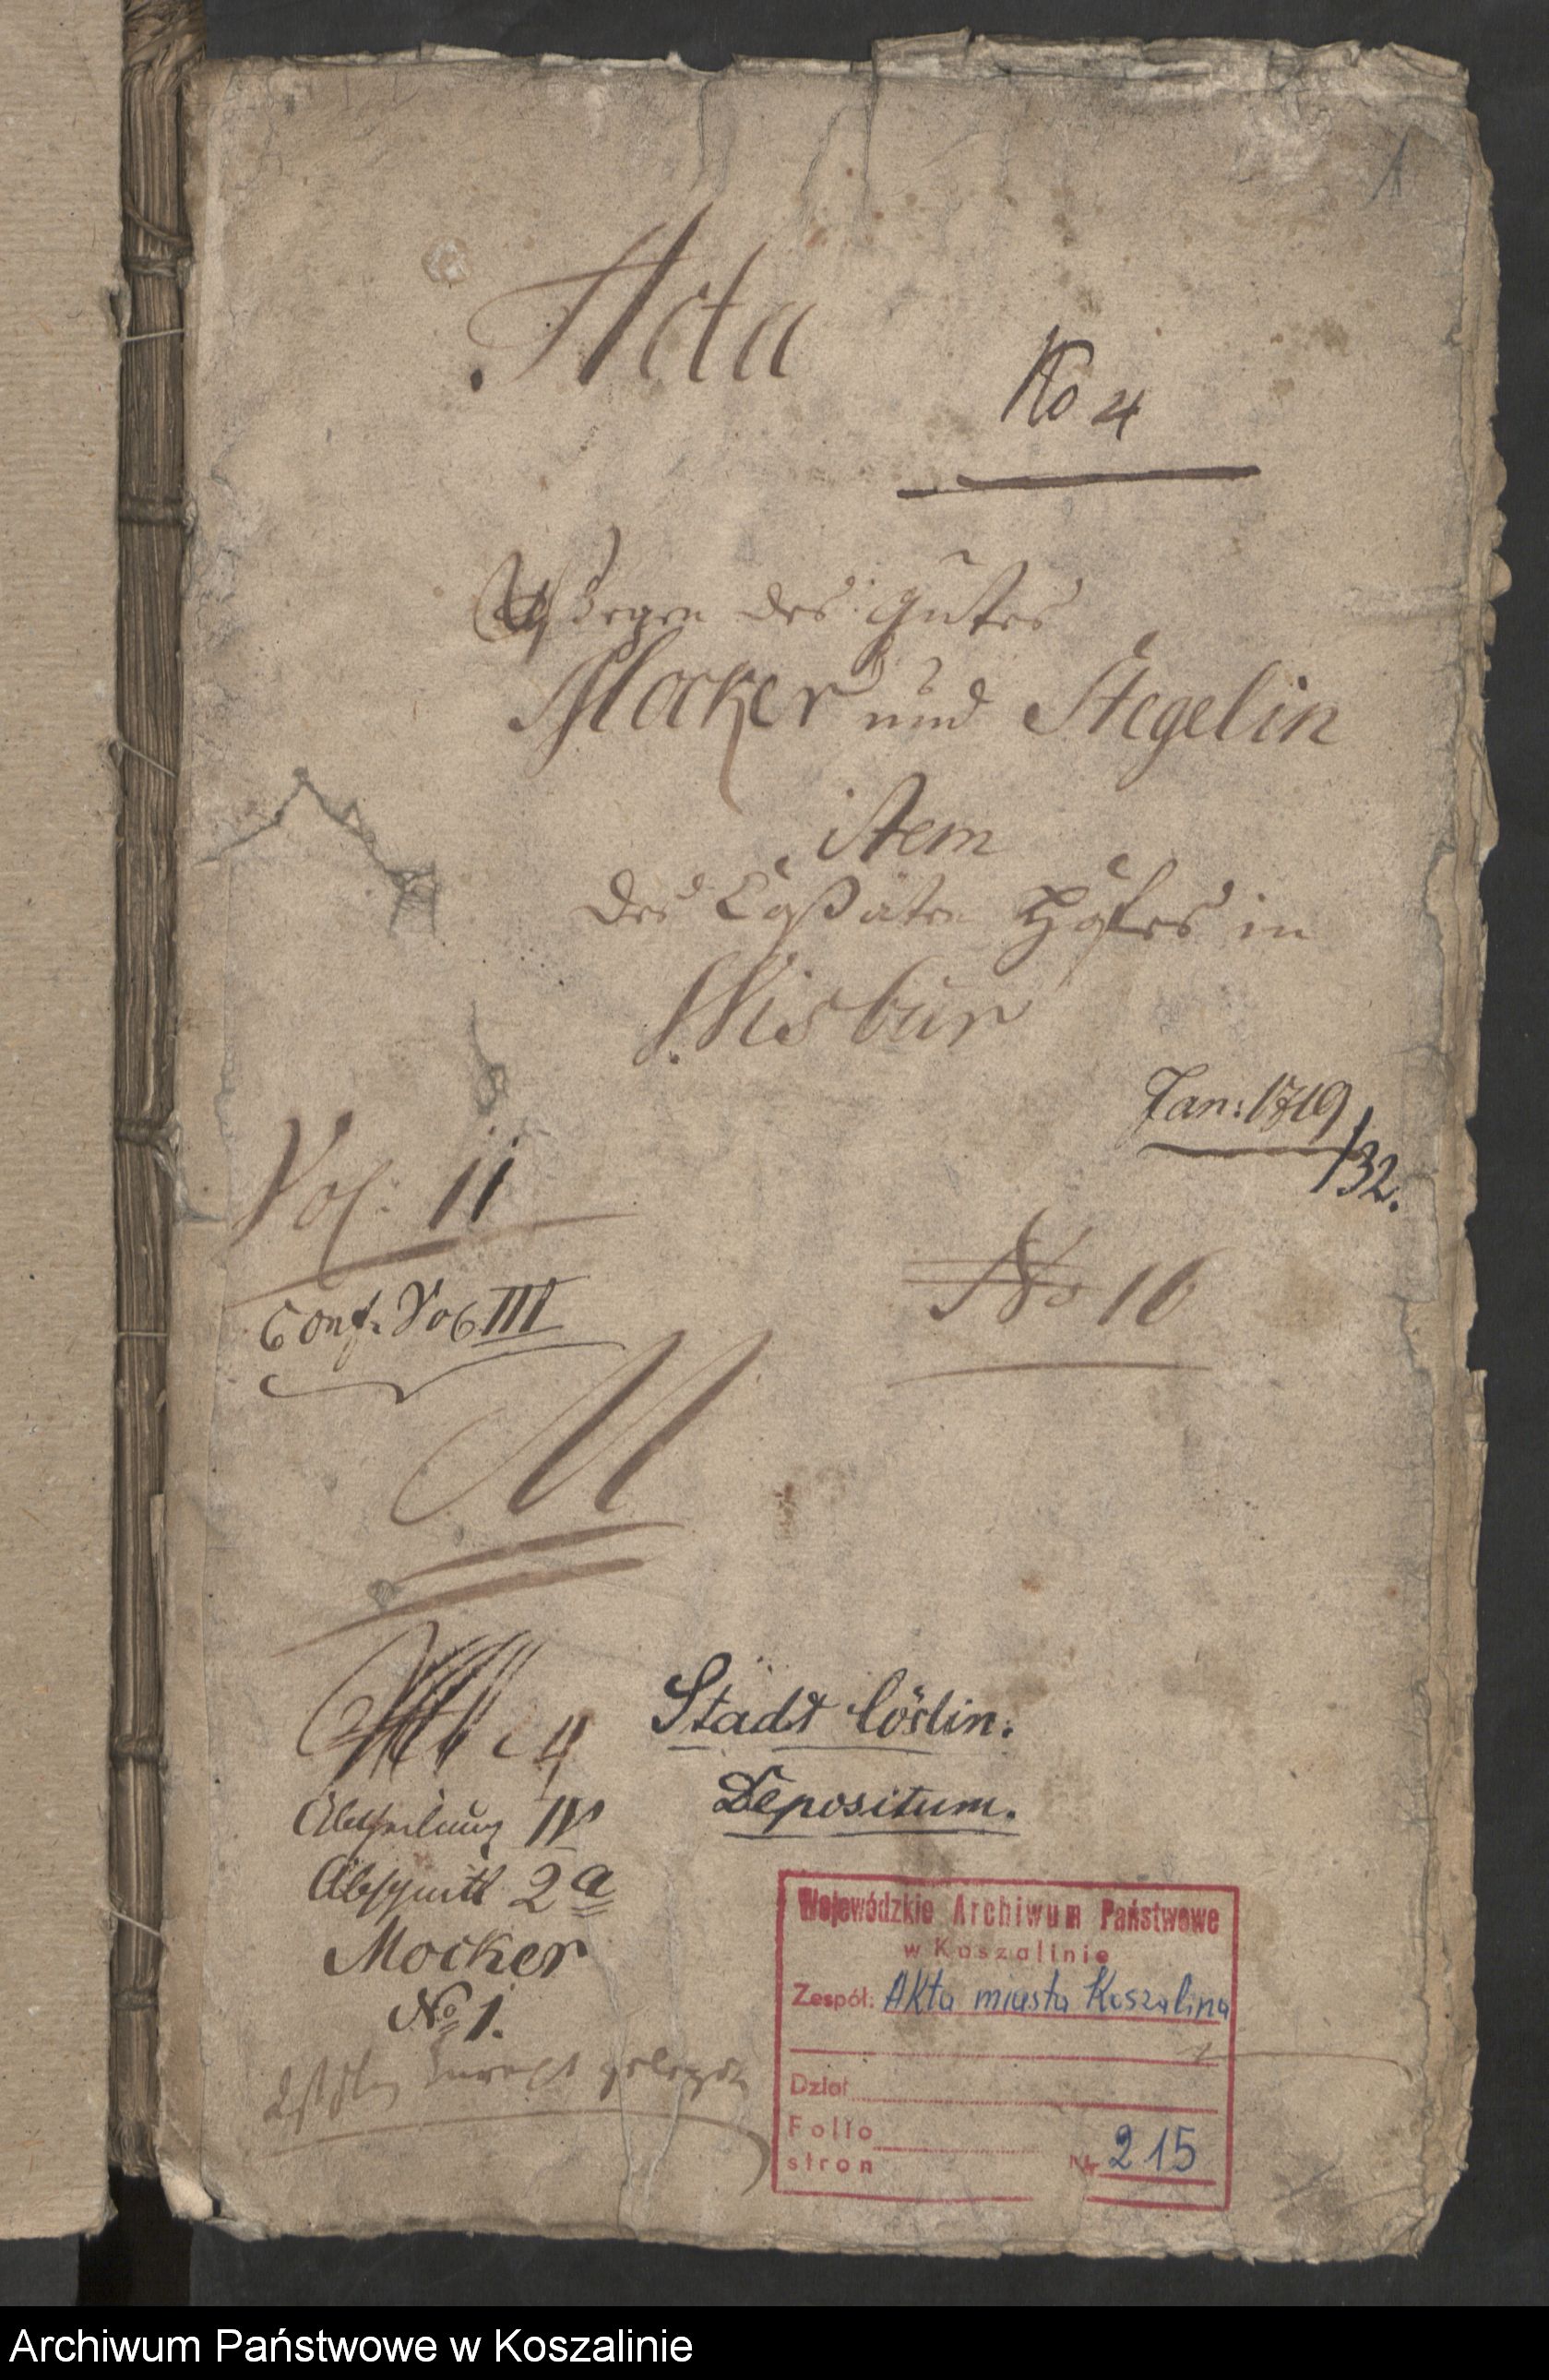 1
Acta
No 4
Wegen des Gutes
Mocker und Stegelin
item
des Coßäten Hofes in
Wisbur
Jan: 1719/32.
Vol: II
Conf. Vol III
No 16
M
4
Stadt Cöslin.
Depositum.
Abtheilung IV
Abschnitt 2a
Mocker
No 1.
gelegen
Wojewódzkie Archiwum Państwowe
w Koszalinie
Zespół: Akta miasta Koszalina
Dział
Folio
stron
Nr 215
Archiwum Państwowe w Koszalinie